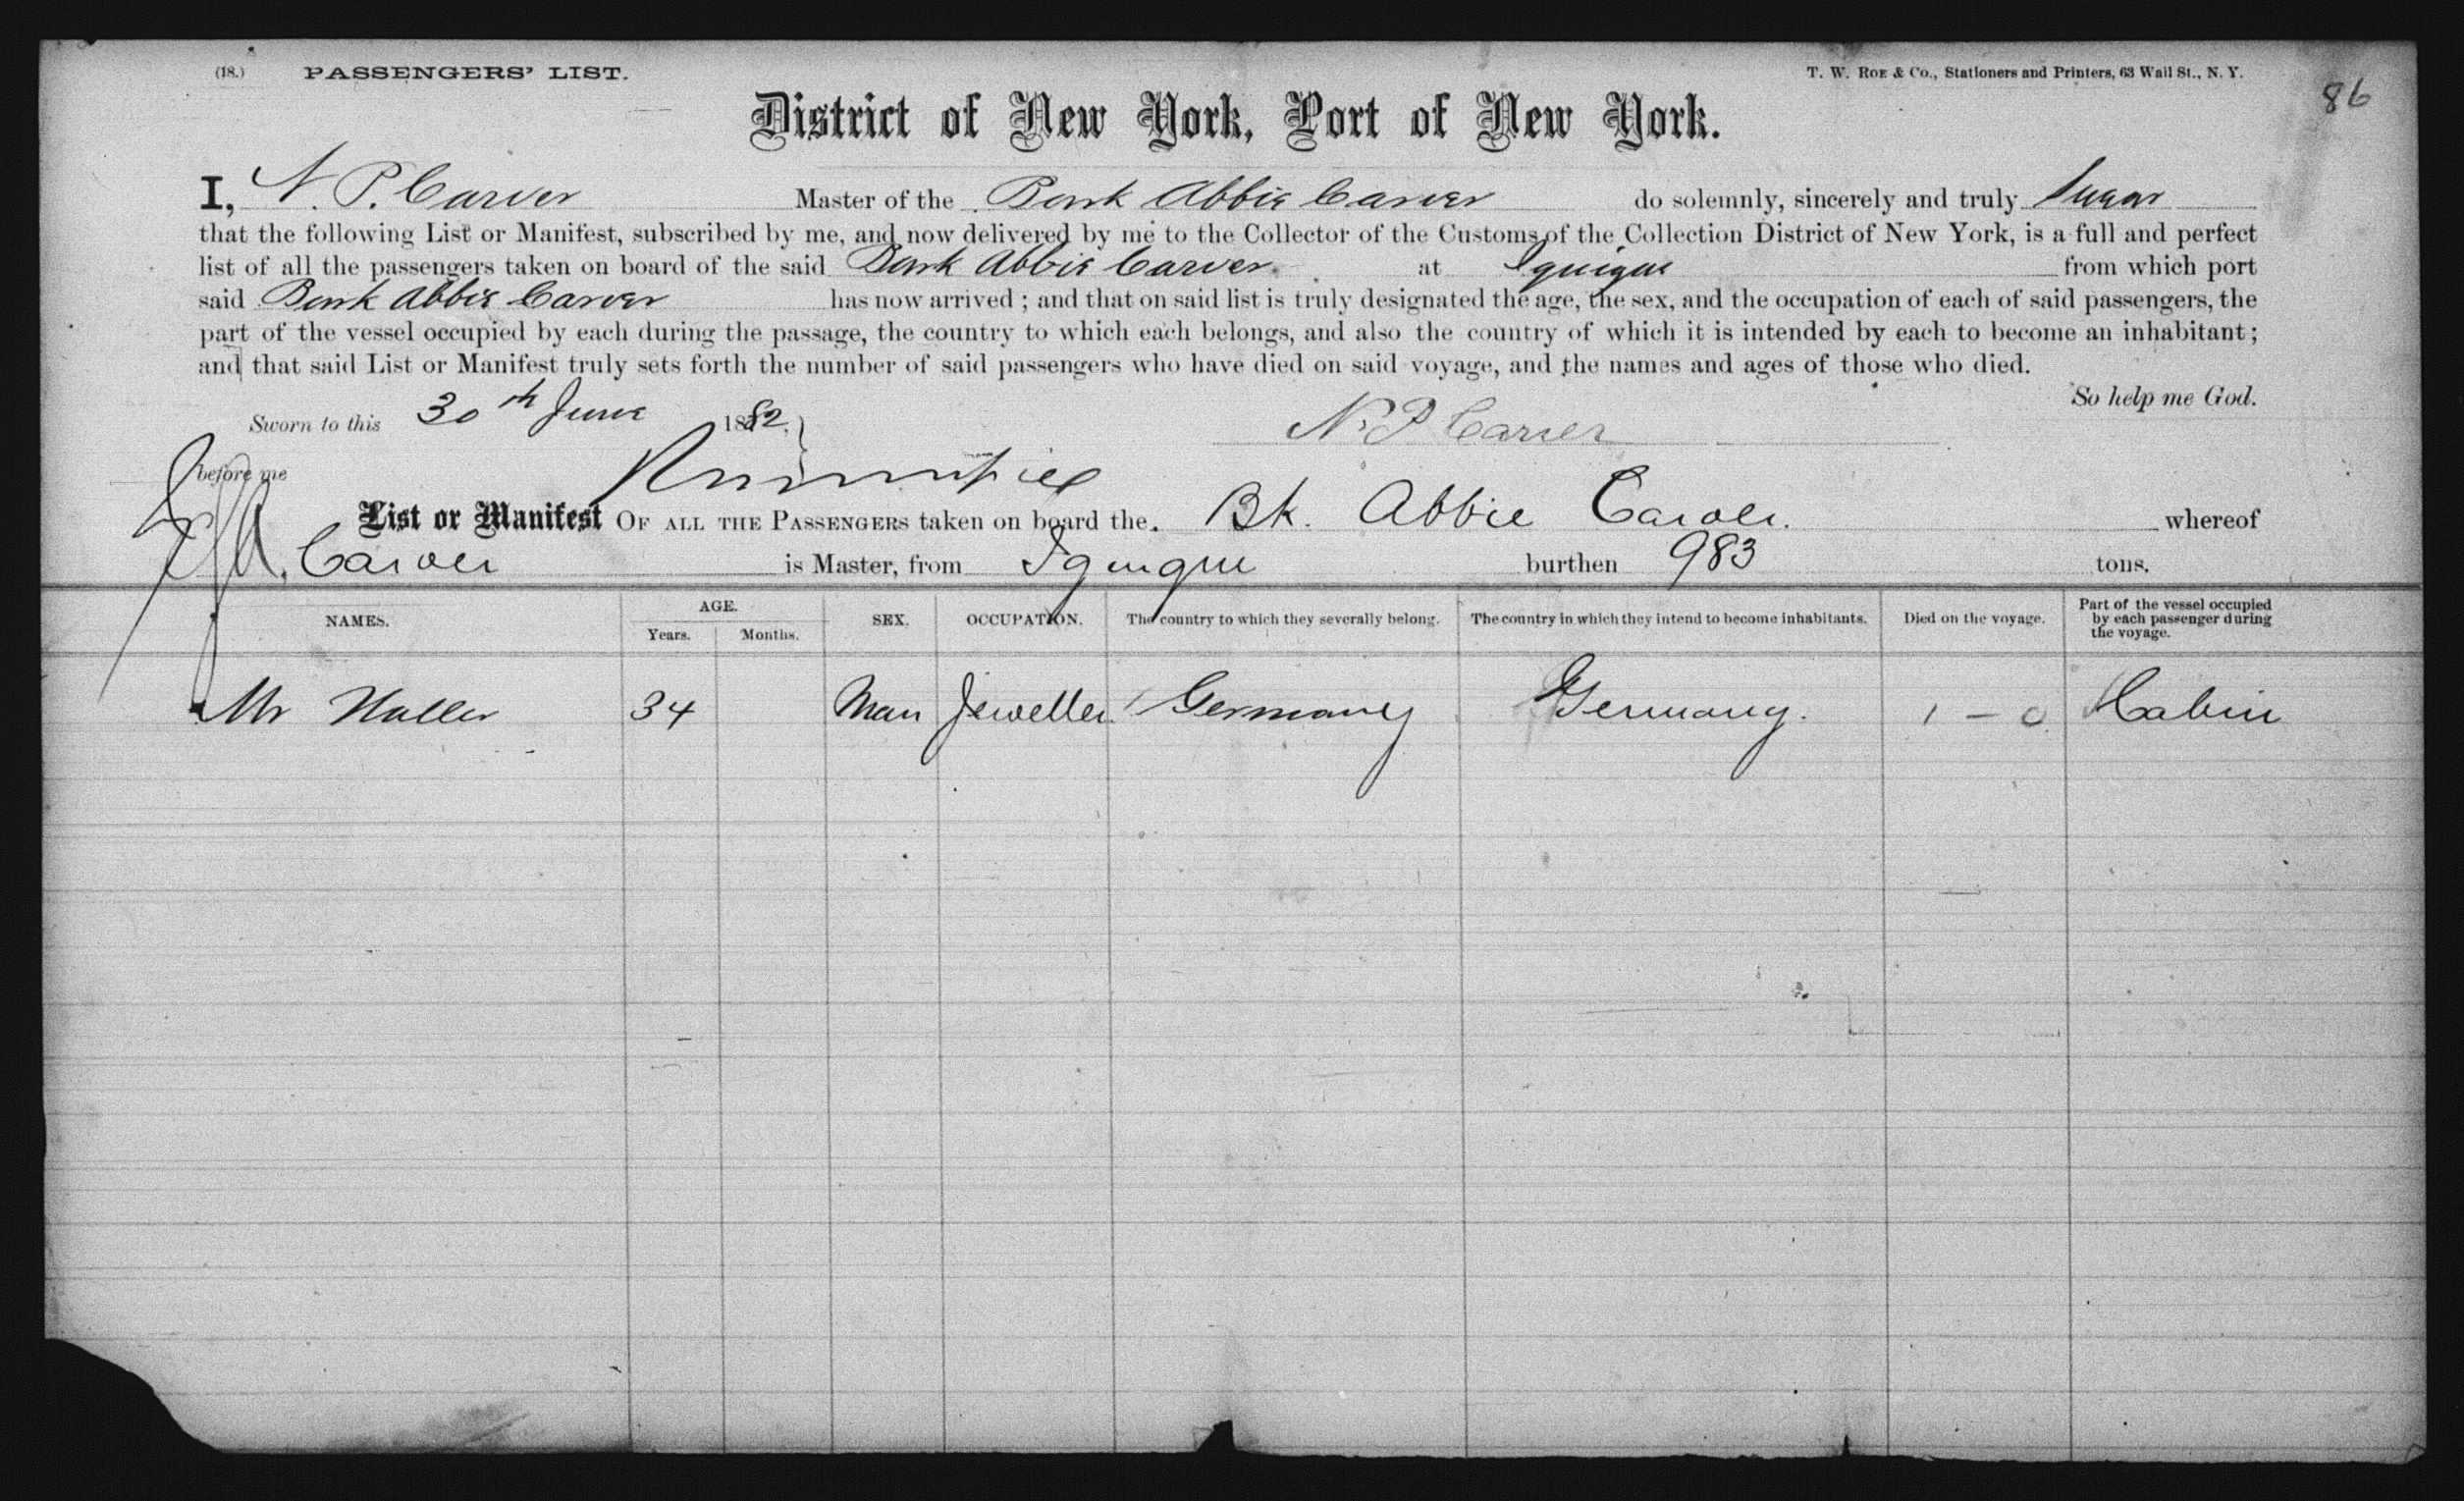 (18.) PASSENGERS' LIST. T. W. ROE & CO., Stationers and Printers, 63 Wall St., N. Y.
86
District of New York, Port of New York.
I, N. P. Carver Master of the Bark Abbie Carver do solemnly, sincerely and truly Swear
that the following List or Manifest, subscribed by me, and now delivered by me to the Collector of the Customs of the Collection District of New York, is a full and perfect
list of all the passengers taken on board of the said Bark Abbie Carver at Iquique from which port
said Bark Abbie Carver has now arrived ; and that on said list is truly designated the age, the sex, and the occupation of each of said passengers, the
part of the vessel occupied by each during the passage, the country to which each belongs, and also the country of which it is intended by each to become an inhabitant ;
and that said List or Manifest truly sets forth the number of said passengers who have died on said voyage, and the names and ages of those who died.
So help me God.
Sworn to this 30th June 1882. N. P. Carver
before me
List or Manifest OF ALL THE PASSENGERS taken on board the Bk. Abbie Carver. whereof
Carver is Master, from Iquique burthen 983 tons.
NAMES. AGE. Years. Months. SEX. OCCUPATION. The country to which they severally belong. The country in which they intend to become inhabitants. Died on the voyage. Part of the vessel occupied by each passenger during the voyage.
Mr Haller 34 Man Jeweller Germany Germany. 1 – 0 Cabin